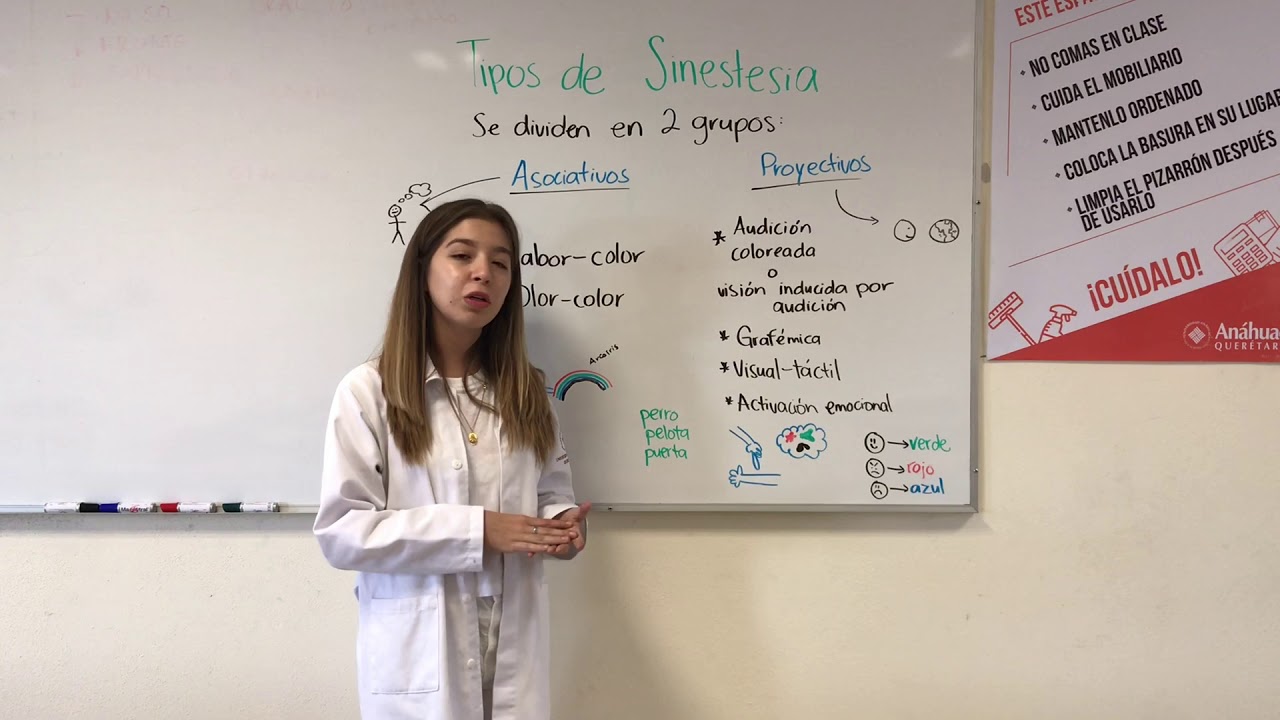 Tipos de Sinestesia
Se dividen en 2 grupos:
Asociativos
abor-color
Olor-color
Arcoiris
perro
pelota
puerta
Proyectivos
* Audición
coloreada
o
visión inducida por
audición
* Grafémica
* Visual-táctil
* Activación emocional
verde
rojo
azul
• NO COMAS EN CLASE
• CUIDA EL MOBILIARIO
• MANTENLO ORDENADO
• COLOCA LA BASURA EN SU LUGAR
• LIMPIA EL PIZARRÓN DESPUÉS
DE USARLO
¡CUÍDALO!
Anáhua
QUERÉTAR